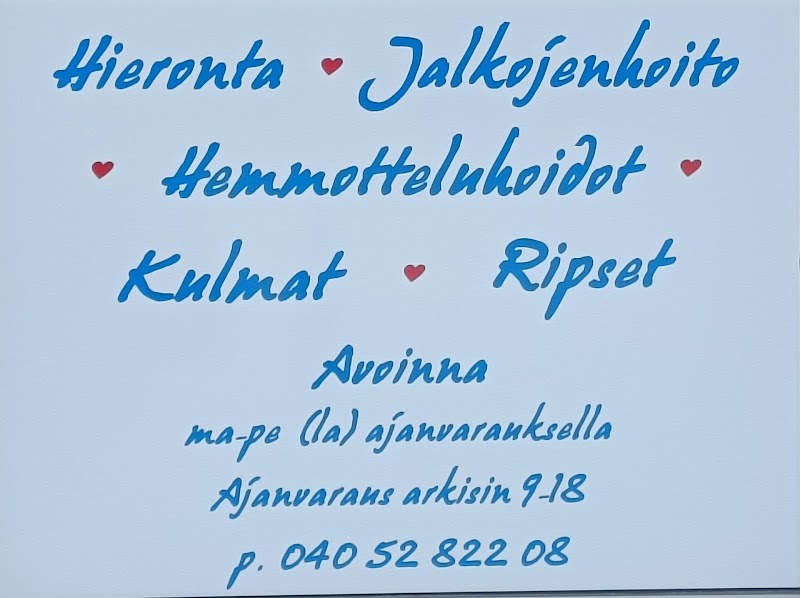 Hieronta ♥ Jalkojenhoito
♥ Hemmotteluhoidot ♥
Kulmat ♥ Ripset
Avoinna
ma-pe (la) ajanvarauksella
Ajanvaraus arkisin 9-18
p. 040 52 822 08